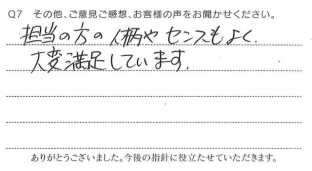 Q7 その他、ご意見ご感想、お客様の声をお聞かせください。
担当の方の人柄やセンスもよく、
大変満足しています。
ありがとうございました。今後の指針に役立たせていただきます。